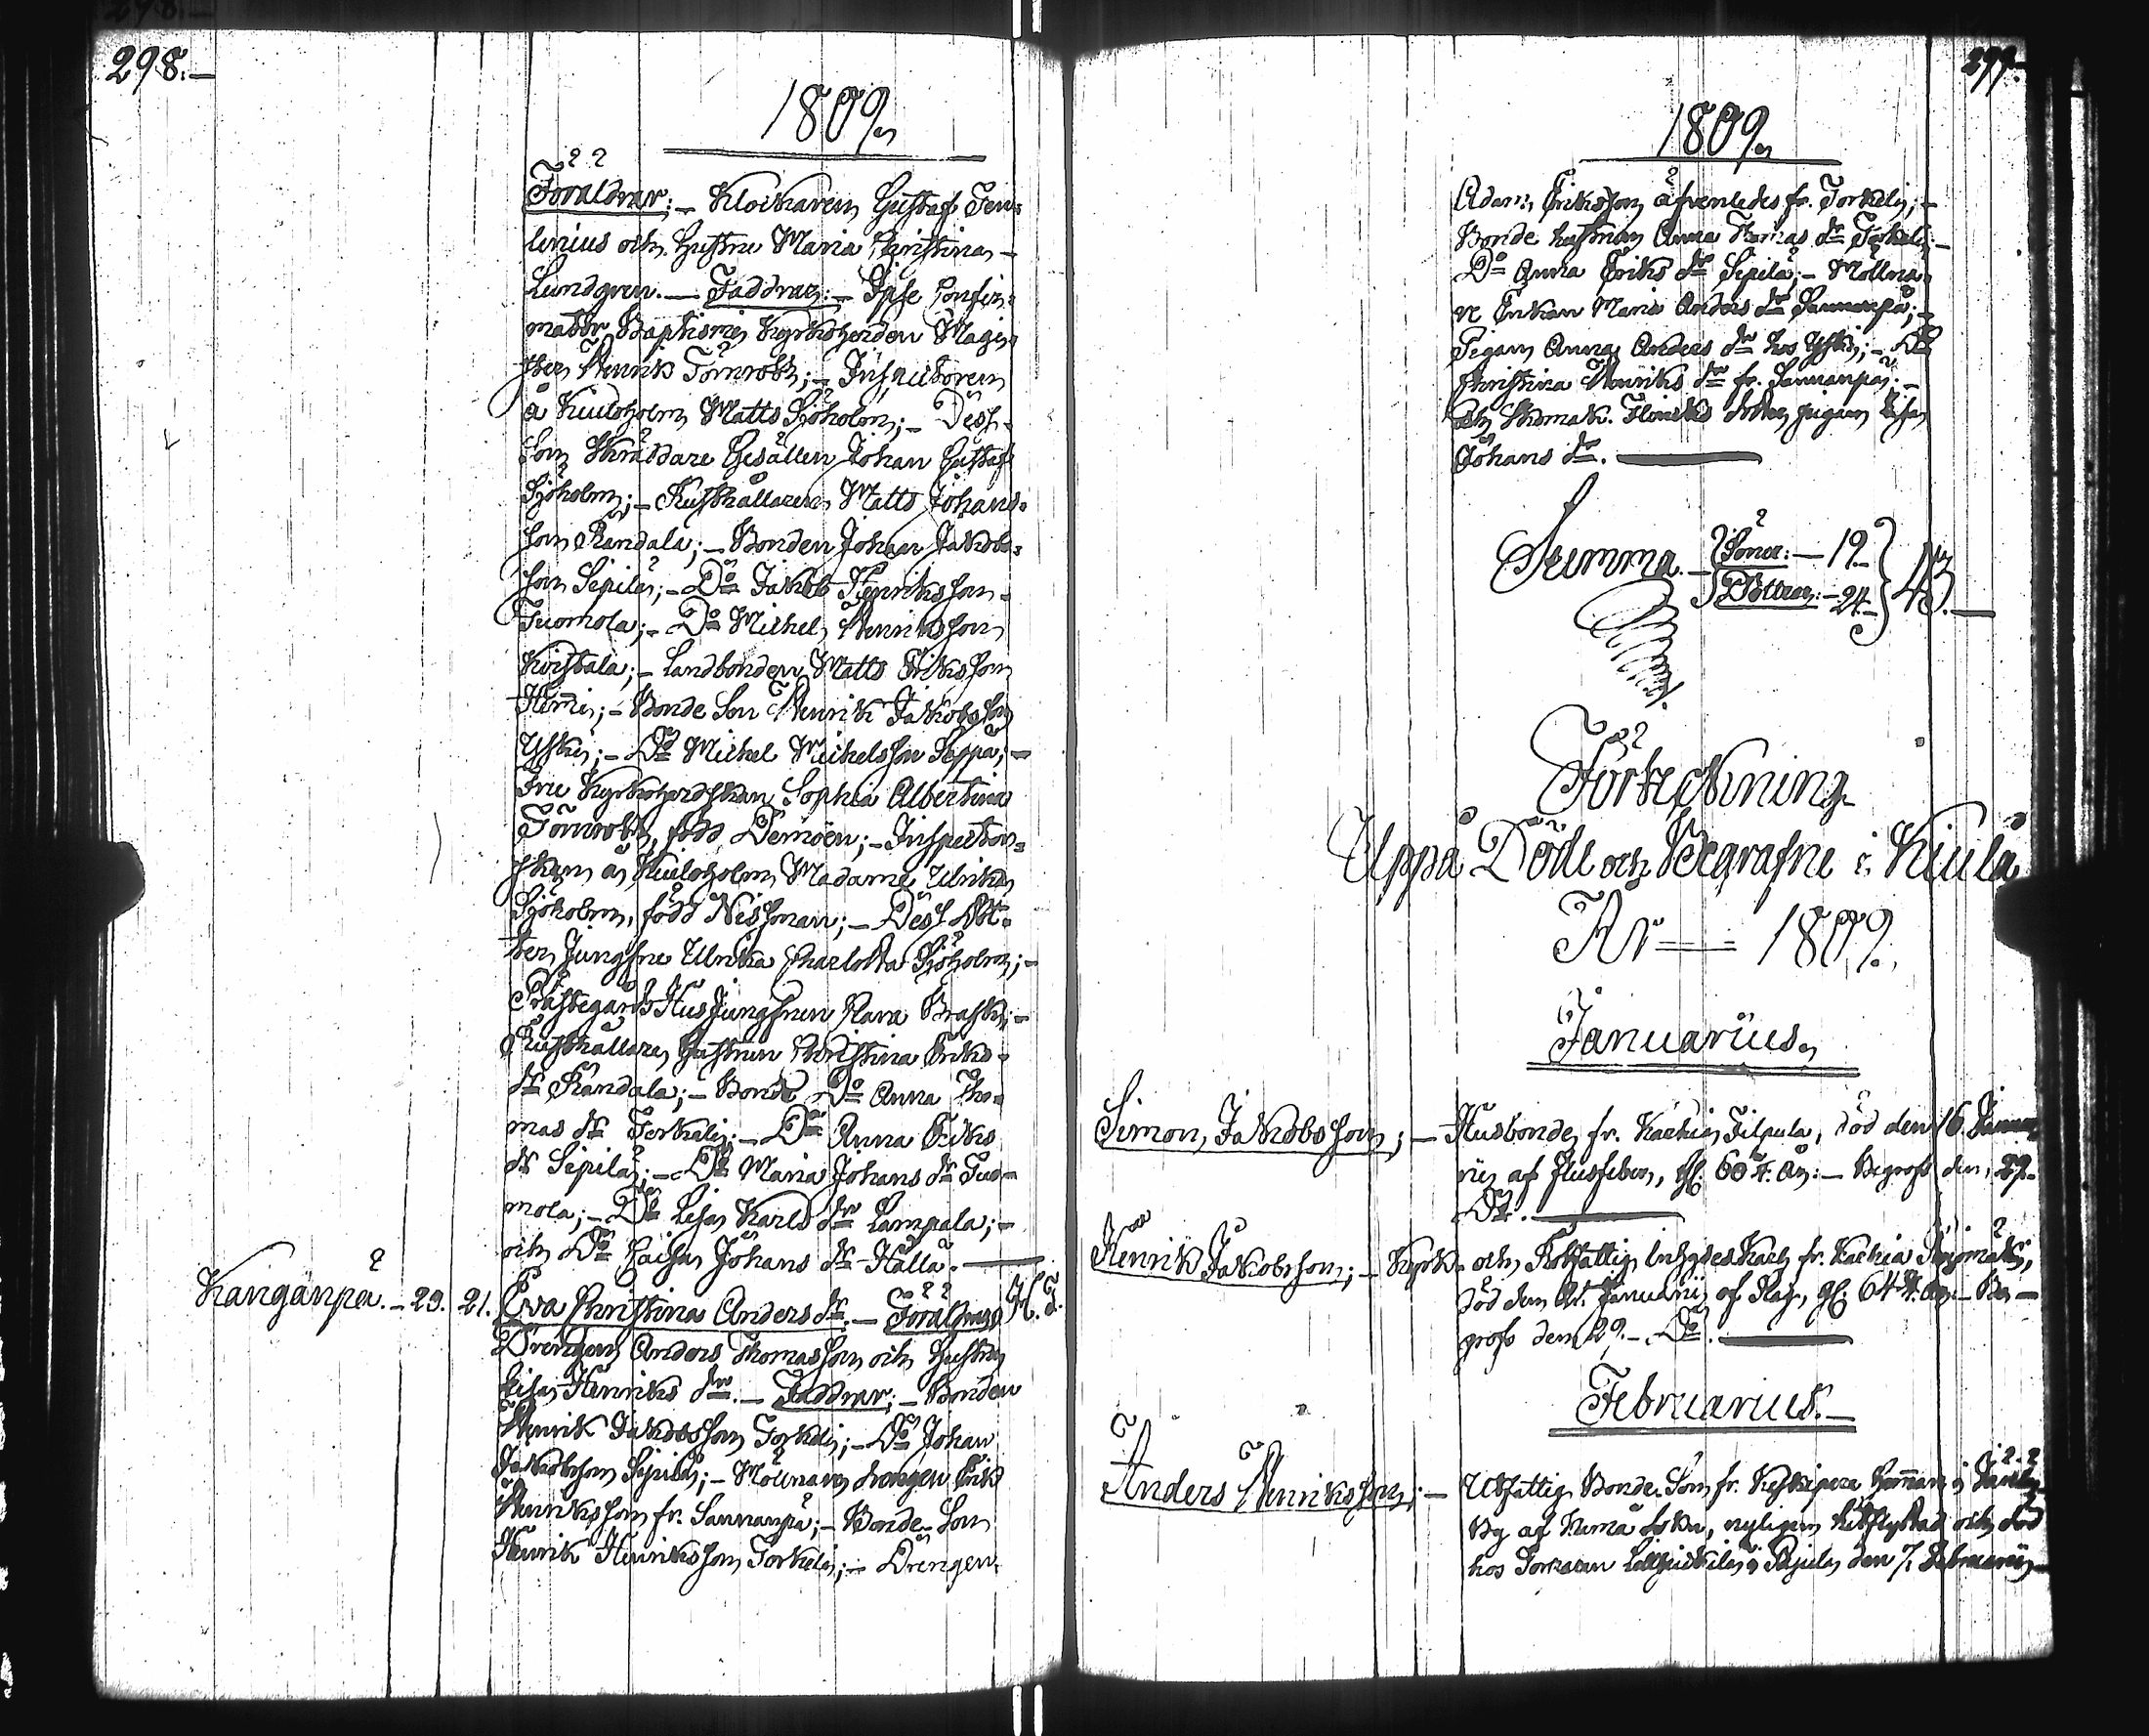 298.—
1809.
Föräldrar; – Klockaren Gustaf Fen=
lenius och Hustru Maria Christina
Lundgren. — Faddrar: – Ipse Confir=
mator Baptismi Kyrkoherden Magi=
ster Henrik Törnroth; – Inspectoren
å Kiuloholm Matts Sjöholm; – Dess
Son Skräddare Gesällen Johan Gustaf
Sjöholm; – Rusthållaren Matts Johans=
son Randala; – Bonden Johan Jakobs=
son Sepilä; – Do Jakob Henriksson
Tuomola; – Do Michel Henriksson
Koistala; – Landbonden Matts Eriksson
– Bonde Son Henrik Jakobsson
Yftti; – Do Michel Michelsson Seppä; –
Fru Kyrkoherdskan Sophia Albertina
Törnroth, född Demoen; – Inspector=
skan å Kiuloholm Madame Ulrika
Sjöholm, född Nessman; – Dess Dot=
ter Jungfru Ulrika Charlotta Sjöholm; –
Prästegårds HusJungfrun Clara
Rusthållare Hustrun Christina Eriks
dr Randala; – Bonde Do Anna Tho=
mas dr Torkeli; – Do Anna Eriks
dr Sepilä; – Do Maria Johans dr Tuo=
mola; – Do Lisa Karls dr Lampala; –
och Do Caisa Johans dr Hälla.
Kanganpä. – 29. 21. Eva Christina Anders dr. – Föräldrar
Drengen Anders Thomasson och Hustru
Lisa Henriks dr. – Faddrar; – Bonden
Henrik Jakobsson Torkeli; – Do Johan
Jakobsson Sepilä; – Mölnare drengen Erik
Henriksson fr. Sannanpä; – Bonde Son
Henrik Henriksson Torkeli; – Drengen
299.
1809.
Adam Eriksson äfvenledes fr. Torkeli; –
Bonde hustrun Anna Thomas dr Torkeli; –
Do Anna Eriks dr Sepilä; – Möllna=
re Enkan Maria Anders dr Sannanpä; –
Pigan Anna Anders dr hos Yftti; – Do
Christina Henriks dr fr. Sannanpä; –
och Skomak. pigan Lisa
Johans dr.
Summa. – Söner: – 19. Döttrar: – 24. 43.
Förteckning
Uppå Döde och Begrafne i Kiula
År = 1809.
Januarius
Simon Jakobsson; – Husbonde fr. Kachia Filpula, död den 16. Janua
rii af flussfeber, gl: 60 4. år: – Begrofs den 29.
Do.
Henrik Jakobsson; – Kyrk- och Rotfattig InhysesKarl fr. Kachia
död den 21. Januarii af Slag, gl: 64 år – Be
grofs den 29. – Do.
Februarius. –
Anders Henriksson; – Utfattig Bonde Son fr. hemman i
By af Kiuma Sokn, nyligen hitflyttad och död
hos Torparen i den 7. Februarii